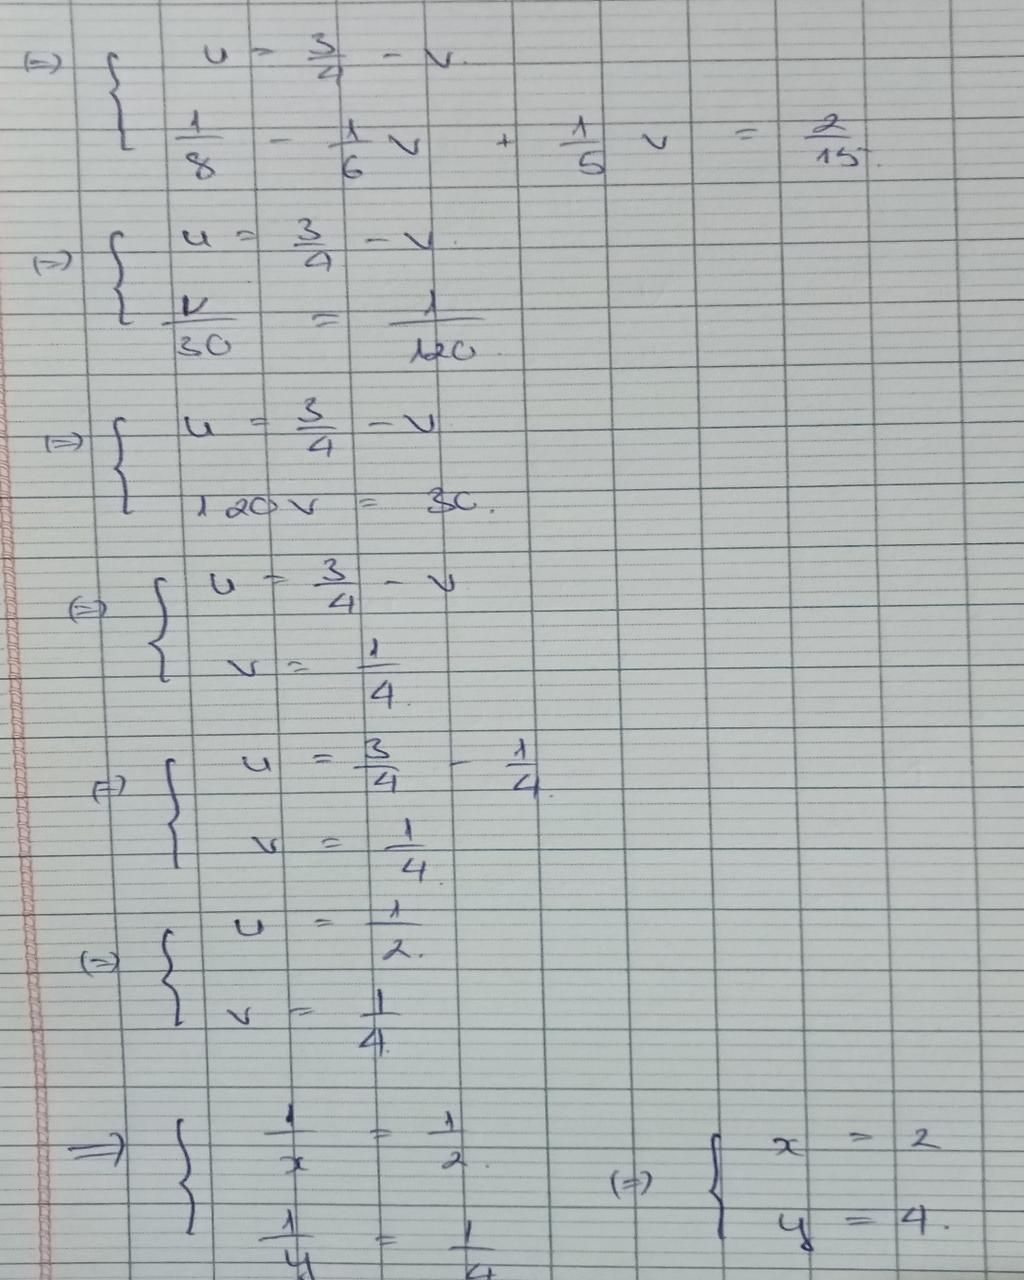 (=) { u = 3/4 - v.
1/8 - 1/6 v + 1/5 v = 2/15.
(=) { u = 3/4 - v.
v/30 = 1/120
(=) { u = 3/4 - v
120v = 30.
(=) { u = 3/4 - v
v = 1/4
(=) { u = 3/4 - 1/4.
v = 1/4.
(=) { u = 1/2.
v = 1/4
=> { 1/x = 1/2. (=) { x = 2
1/y = 1/4 y = 4.